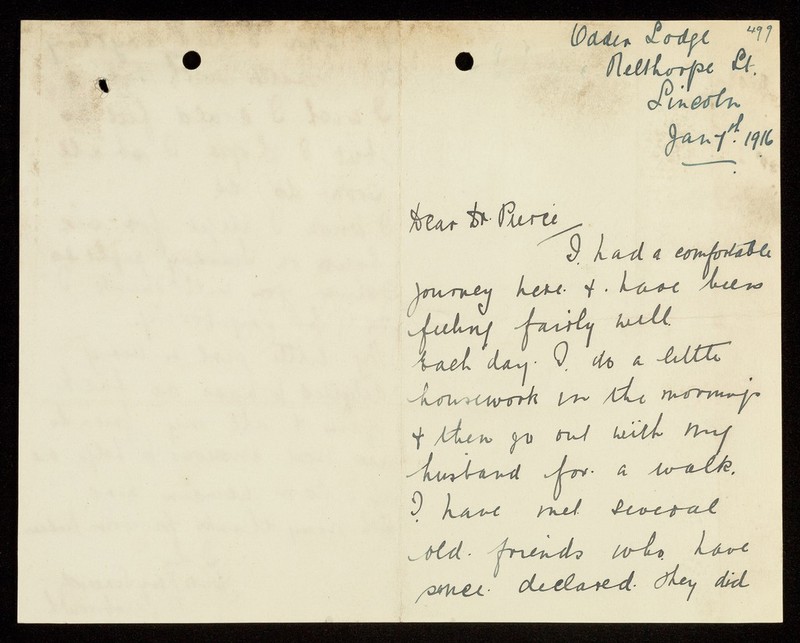 499
Odder Lodge
Nelthorpe St.
Lincoln
Jan 7th. 1916
Dear Dr. Pierce
I had a comfortable
journey here. & have been
feeling fairly well.
Each day. I do a little
housework in the mornings
& then go out with my
husband for a walk.
I have met several
old friends who have
since declared they did